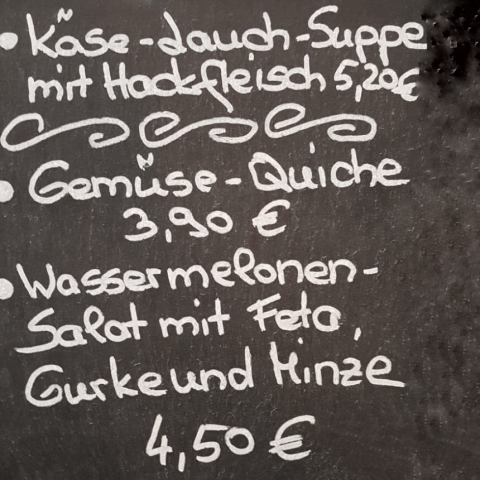 • Käse-Lauch-Suppe
mit Hackfleisch 5,20€
• Gemüse-Quiche
3,90 €
• Wassermelonen-
Salat mit Feta,
Gurke und Minze
4,50 €